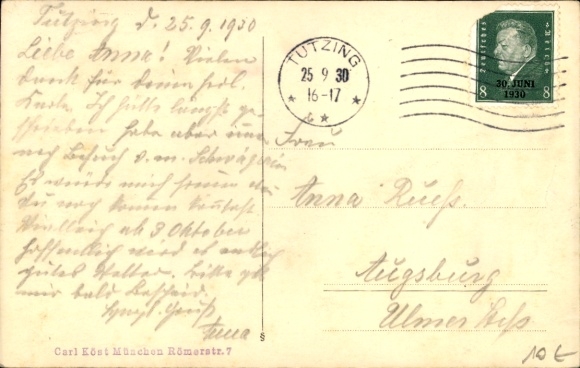 Tutzing d. 25.9.1930
Liebe Anna! Vielen
Dank für deine
Karte. Ich hätte längst ge
schrieben habe aber immer
noch Besuch v. m. Schwägerin
Es würde mich freuen wen
du noch kommen könntest
Vielleich ab 3 Oktober
hoffentlich wird es endlich
gutes Wetter. Bitte geb
mir bald Bescheid.
Gruß
Carl Köst München Römerstr. 7
§
TUTZING
25 9 30
16-17
Deutsches Reich
30. JUNI
1930
8 8
Frau
Anna Rueß.
Augsburg
Ulmer
10 €